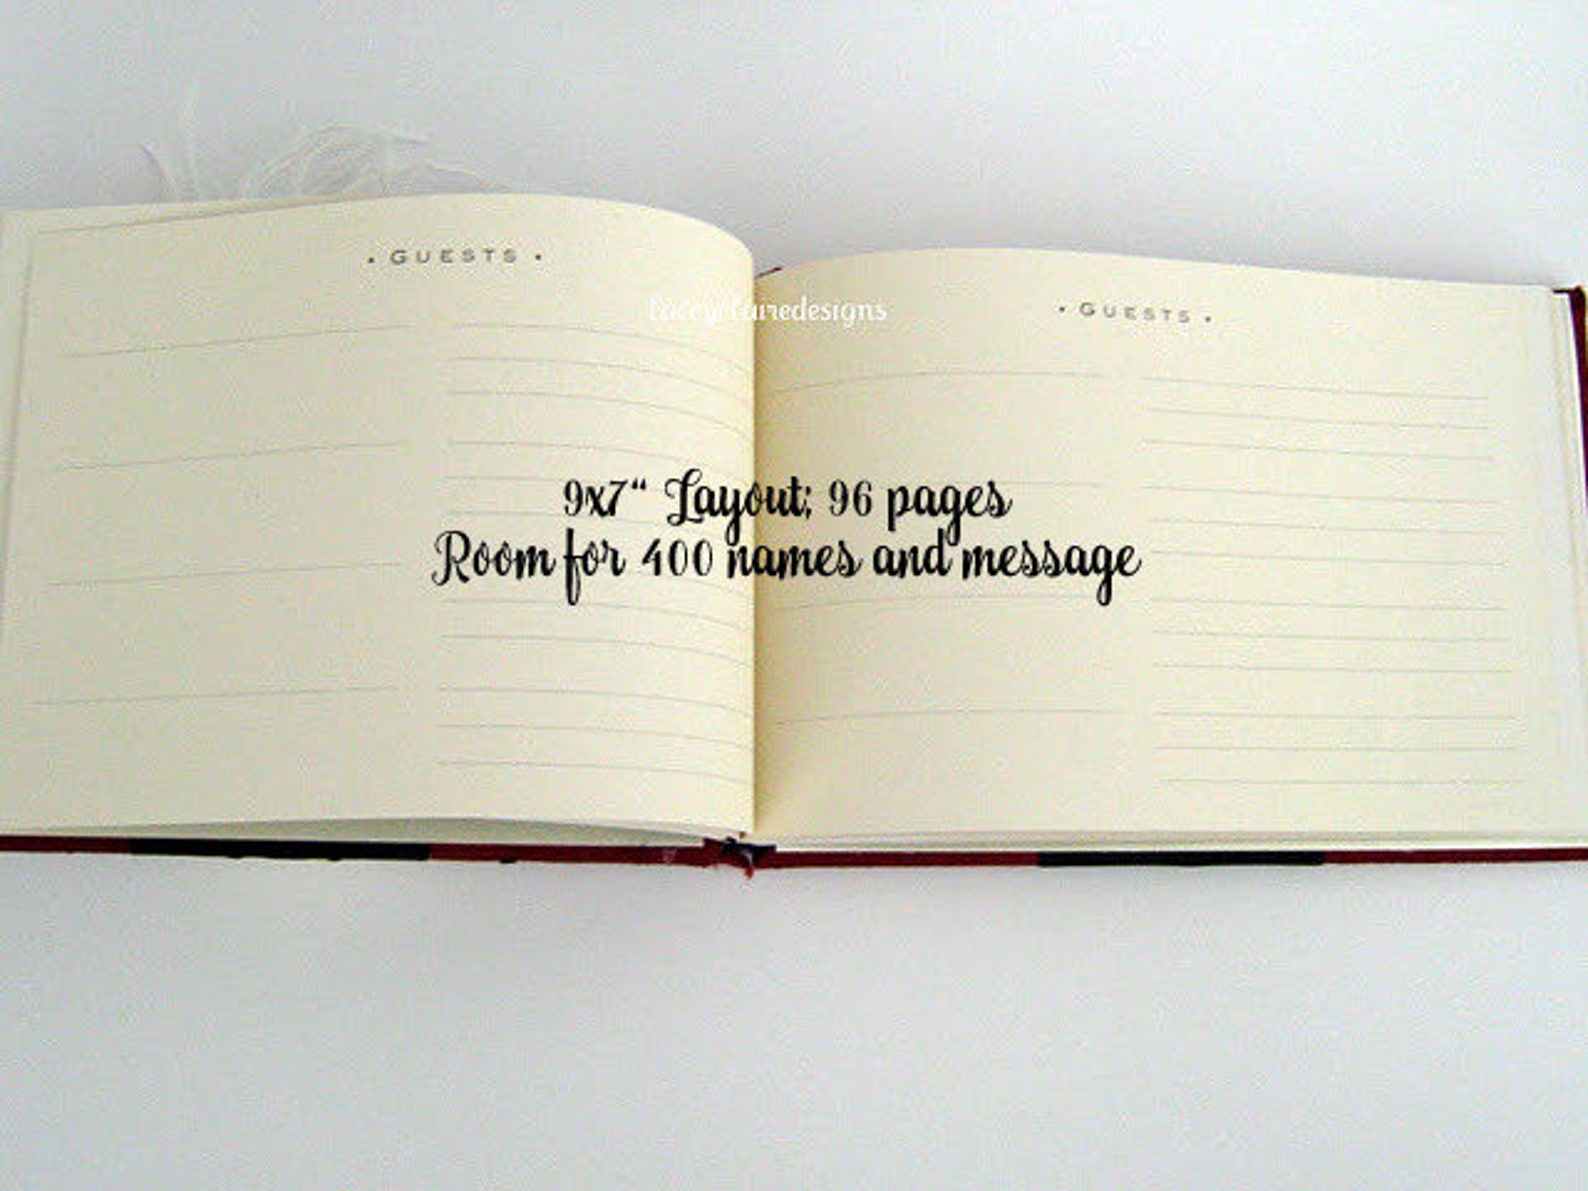 • GUESTS •
• GUESTS •
9x7“ Layout; 96 pages
Room for 400 names and message